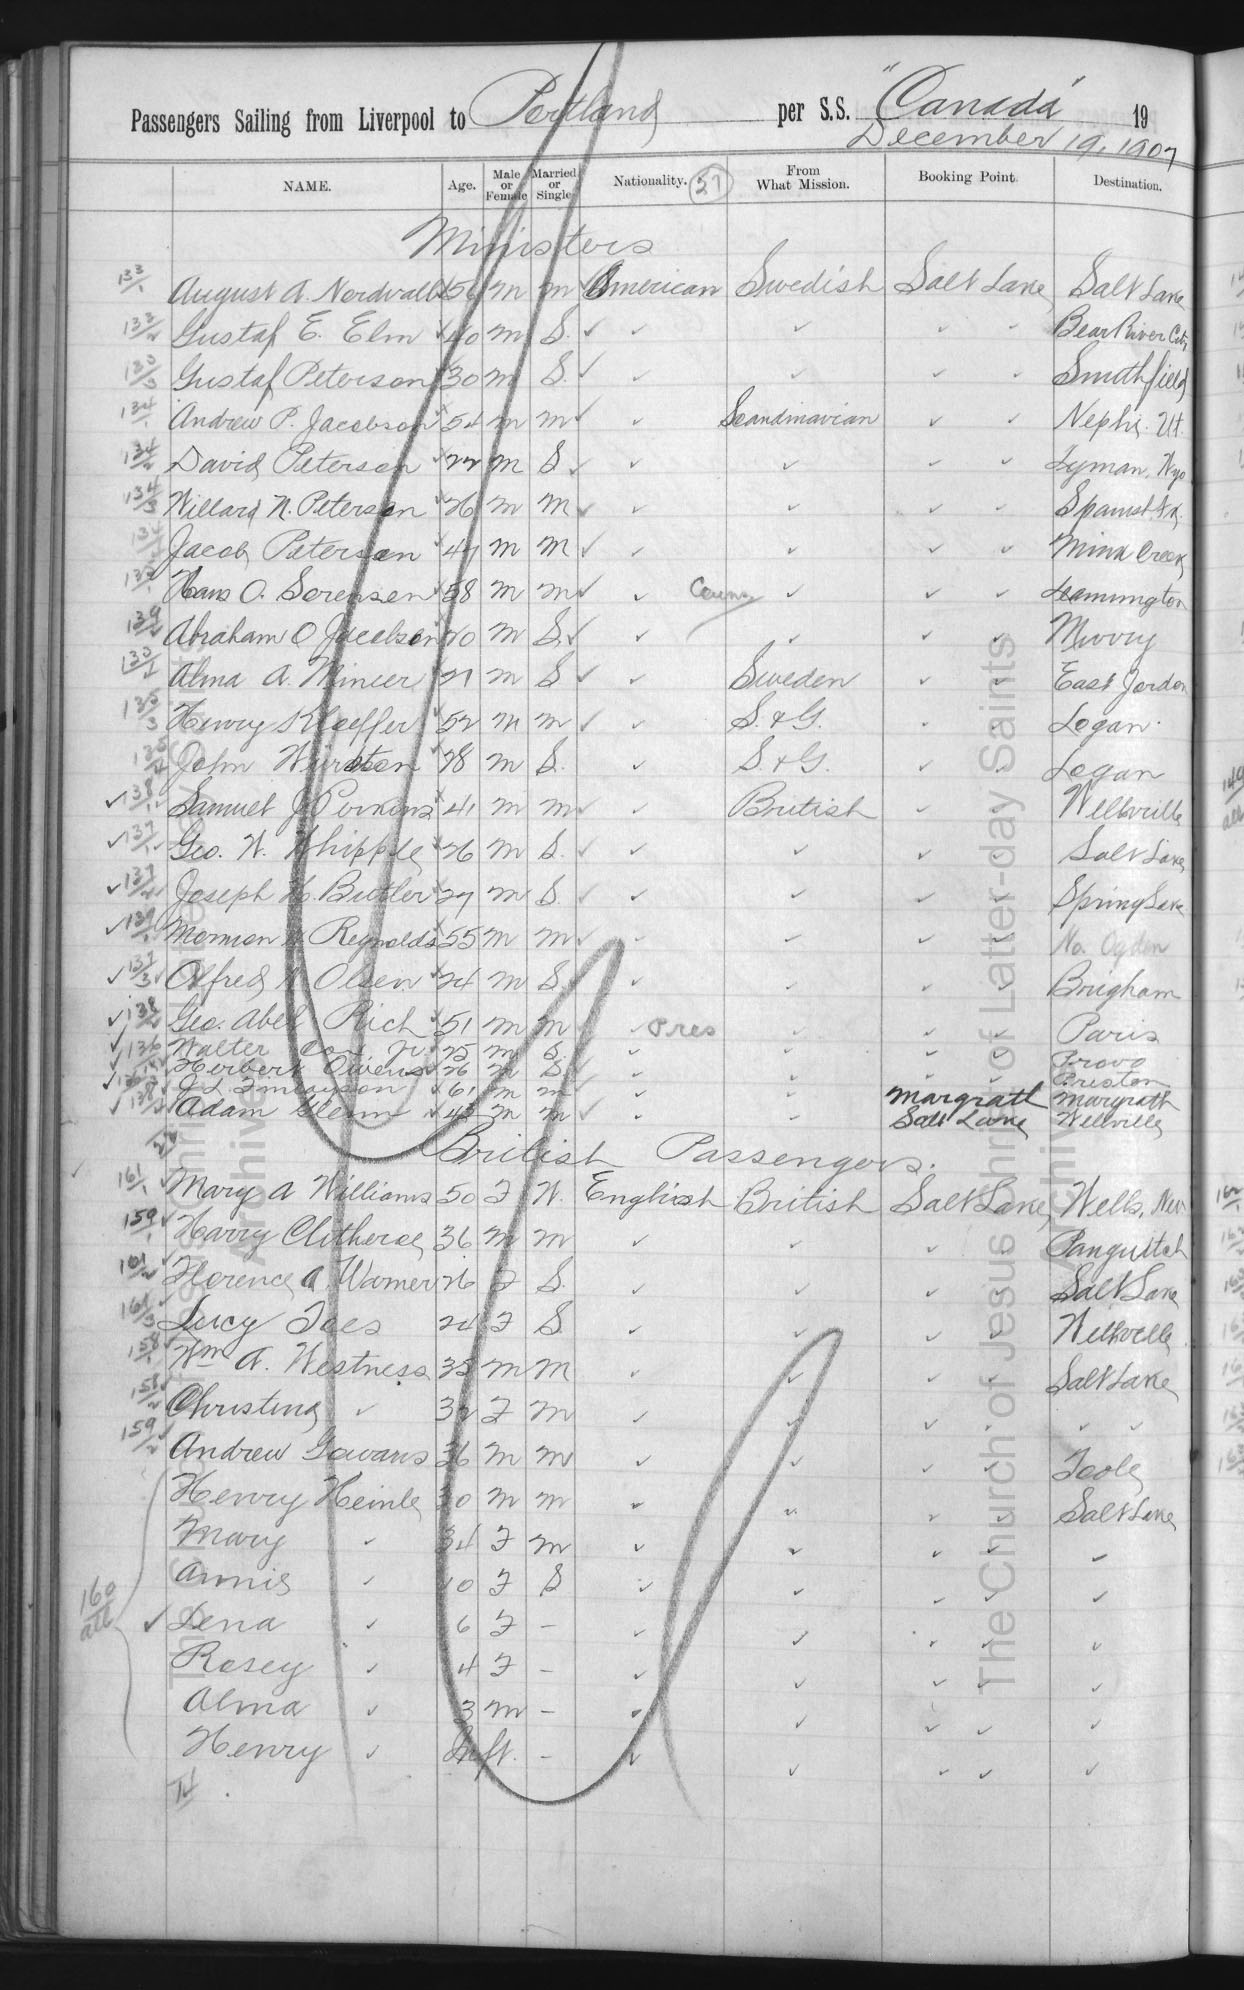 Passengers Sailing from Liverpool to Portland per S.S. "Canada" 19
December 19, 1907
NAME. Age. Male or Female Married or Single Nationality. (27) From What Mission. Booking Point. Destination.
Ministers
133/1 August A. Nordvall 56 m m American Swedish Salt Lake Salt Lake
133/2 Gustaf E. Elm ✓ 40 m S. ✓ ✓ ✓ ✓ ✓ Bear River City
133/3 Gustaf Peterson 30 m S. ✓ ✓ ✓ ✓ ✓ Smithfield
134/1 Andrew P. Jacobson 54 m m ✓ ✓ Scandinavian ✓ ✓ Nephi. Ut.
134/2 David Peterson ✓ 22 m S ✓ ✓ ✓ ✓ ✓ Lyman, Wyo
134/3 Willard N. Peterson 26 m m ✓ ✓ ✓ ✓ ✓ Spanish Fk
Jacob Peterson 47 m m ✓ ✓ ✓ ✓ ✓ Mink Creek
Hans O. Sorensen 58 m m ✓ ✓ ✓ ✓ ✓ Leamington
Abraham O Jacobson 20 m S. ✓ ✓ ✓ ✓ ✓ Murry
Alma A. Mineer 21 m S ✓ ✓ Sweden ✓ ✓ East Jordon
135/3 Henry Kloeffer 52 m m ✓ ✓ S. & G. Logan.
John 28 m S. ✓ S. & G. ✓ ✓ Logan
✓ 138 Samuel J Perkins 41 m m ✓ ✓ British ✓ Wellsville
✓ 137/1 Geo. W. Whipple 26 m S. ✓ ✓ ✓ ✓ ✓ Salt Lake
✓ 137 Joseph H. Butler 27 m S. ✓ ✓ ✓ ✓ ✓ Spring Lake
✓ 139/1 Mormon Reynolds 55 m m ✓ ✓ ✓ ✓ ✓ No. Ogden
✓ 137/3 Alfred Olsen 24 m S. ✓ ✓ ✓ ✓ ✓ Brigham
✓ 138 Geo. Abel Rich 51 m m ✓ ✓ Pres ✓ ✓ ✓ Paris
✓ 136 Walter Cox Jr. 25 m S. ✓ ✓ ✓ ✓ Provo
Herbert Owens 26 m S. ✓ ✓ ✓ ✓ Preston
Finlayson 61 m m ✓ ✓ ✓ Margrath Margrath
✓ 138 Adam Glenn 45 m m ✓ ✓ ✓ Salt Lake Wellville
22
British Passengers.
161/1 Mary A Williams 50 F W. English British Salt Lake Wells, Nev
159/1 Harry Clitheroe 36 m m ✓ ✓ ✓ ✓ Panguitch
161/2 Florence A Warner 26 F S. ✓ ✓ ✓ ✓ Salt Lake
161/3 Lucy Toes 24 F S. ✓ ✓ ✓ ✓ Wellsville
158/1 Wm A. Westness 35 m m ✓ ✓ ✓ ✓ Salt Lake
158/2 Christina ✓ 32 F m ✓ ✓ ✓ ✓ ✓ ✓
159/2 Andrew Gowans 36 m m ✓ ✓ ✓ ✓ Tooele
Henry Heinle 30 m m ✓ ✓ ✓ ✓ Salt Lake
Mary ✓ 34 F m ✓ ✓ ✓ ✓ ✓
Annie ✓ 10 F S ✓ ✓ ✓ ✓ ✓
160 all ✓ Lena ✓ 6 F - ✓ ✓ ✓ ✓ ✓
Rosey ✓ 4 F - ✓ ✓ ✓ ✓ ✓
Alma ✓ 3 m - ✓ ✓ ✓ ✓ ✓
Henry ✓ Inft. - ✓ ✓ ✓ ✓ ✓
14
The Church of Jesus Christ of Latter-day Saints
Archives